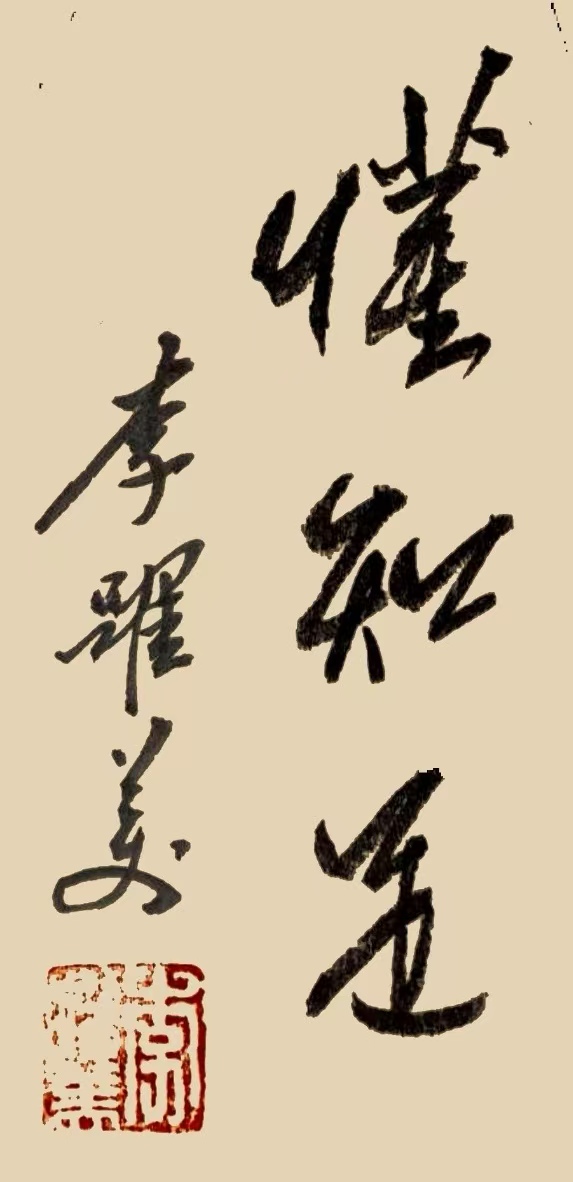 懂知足
李躍